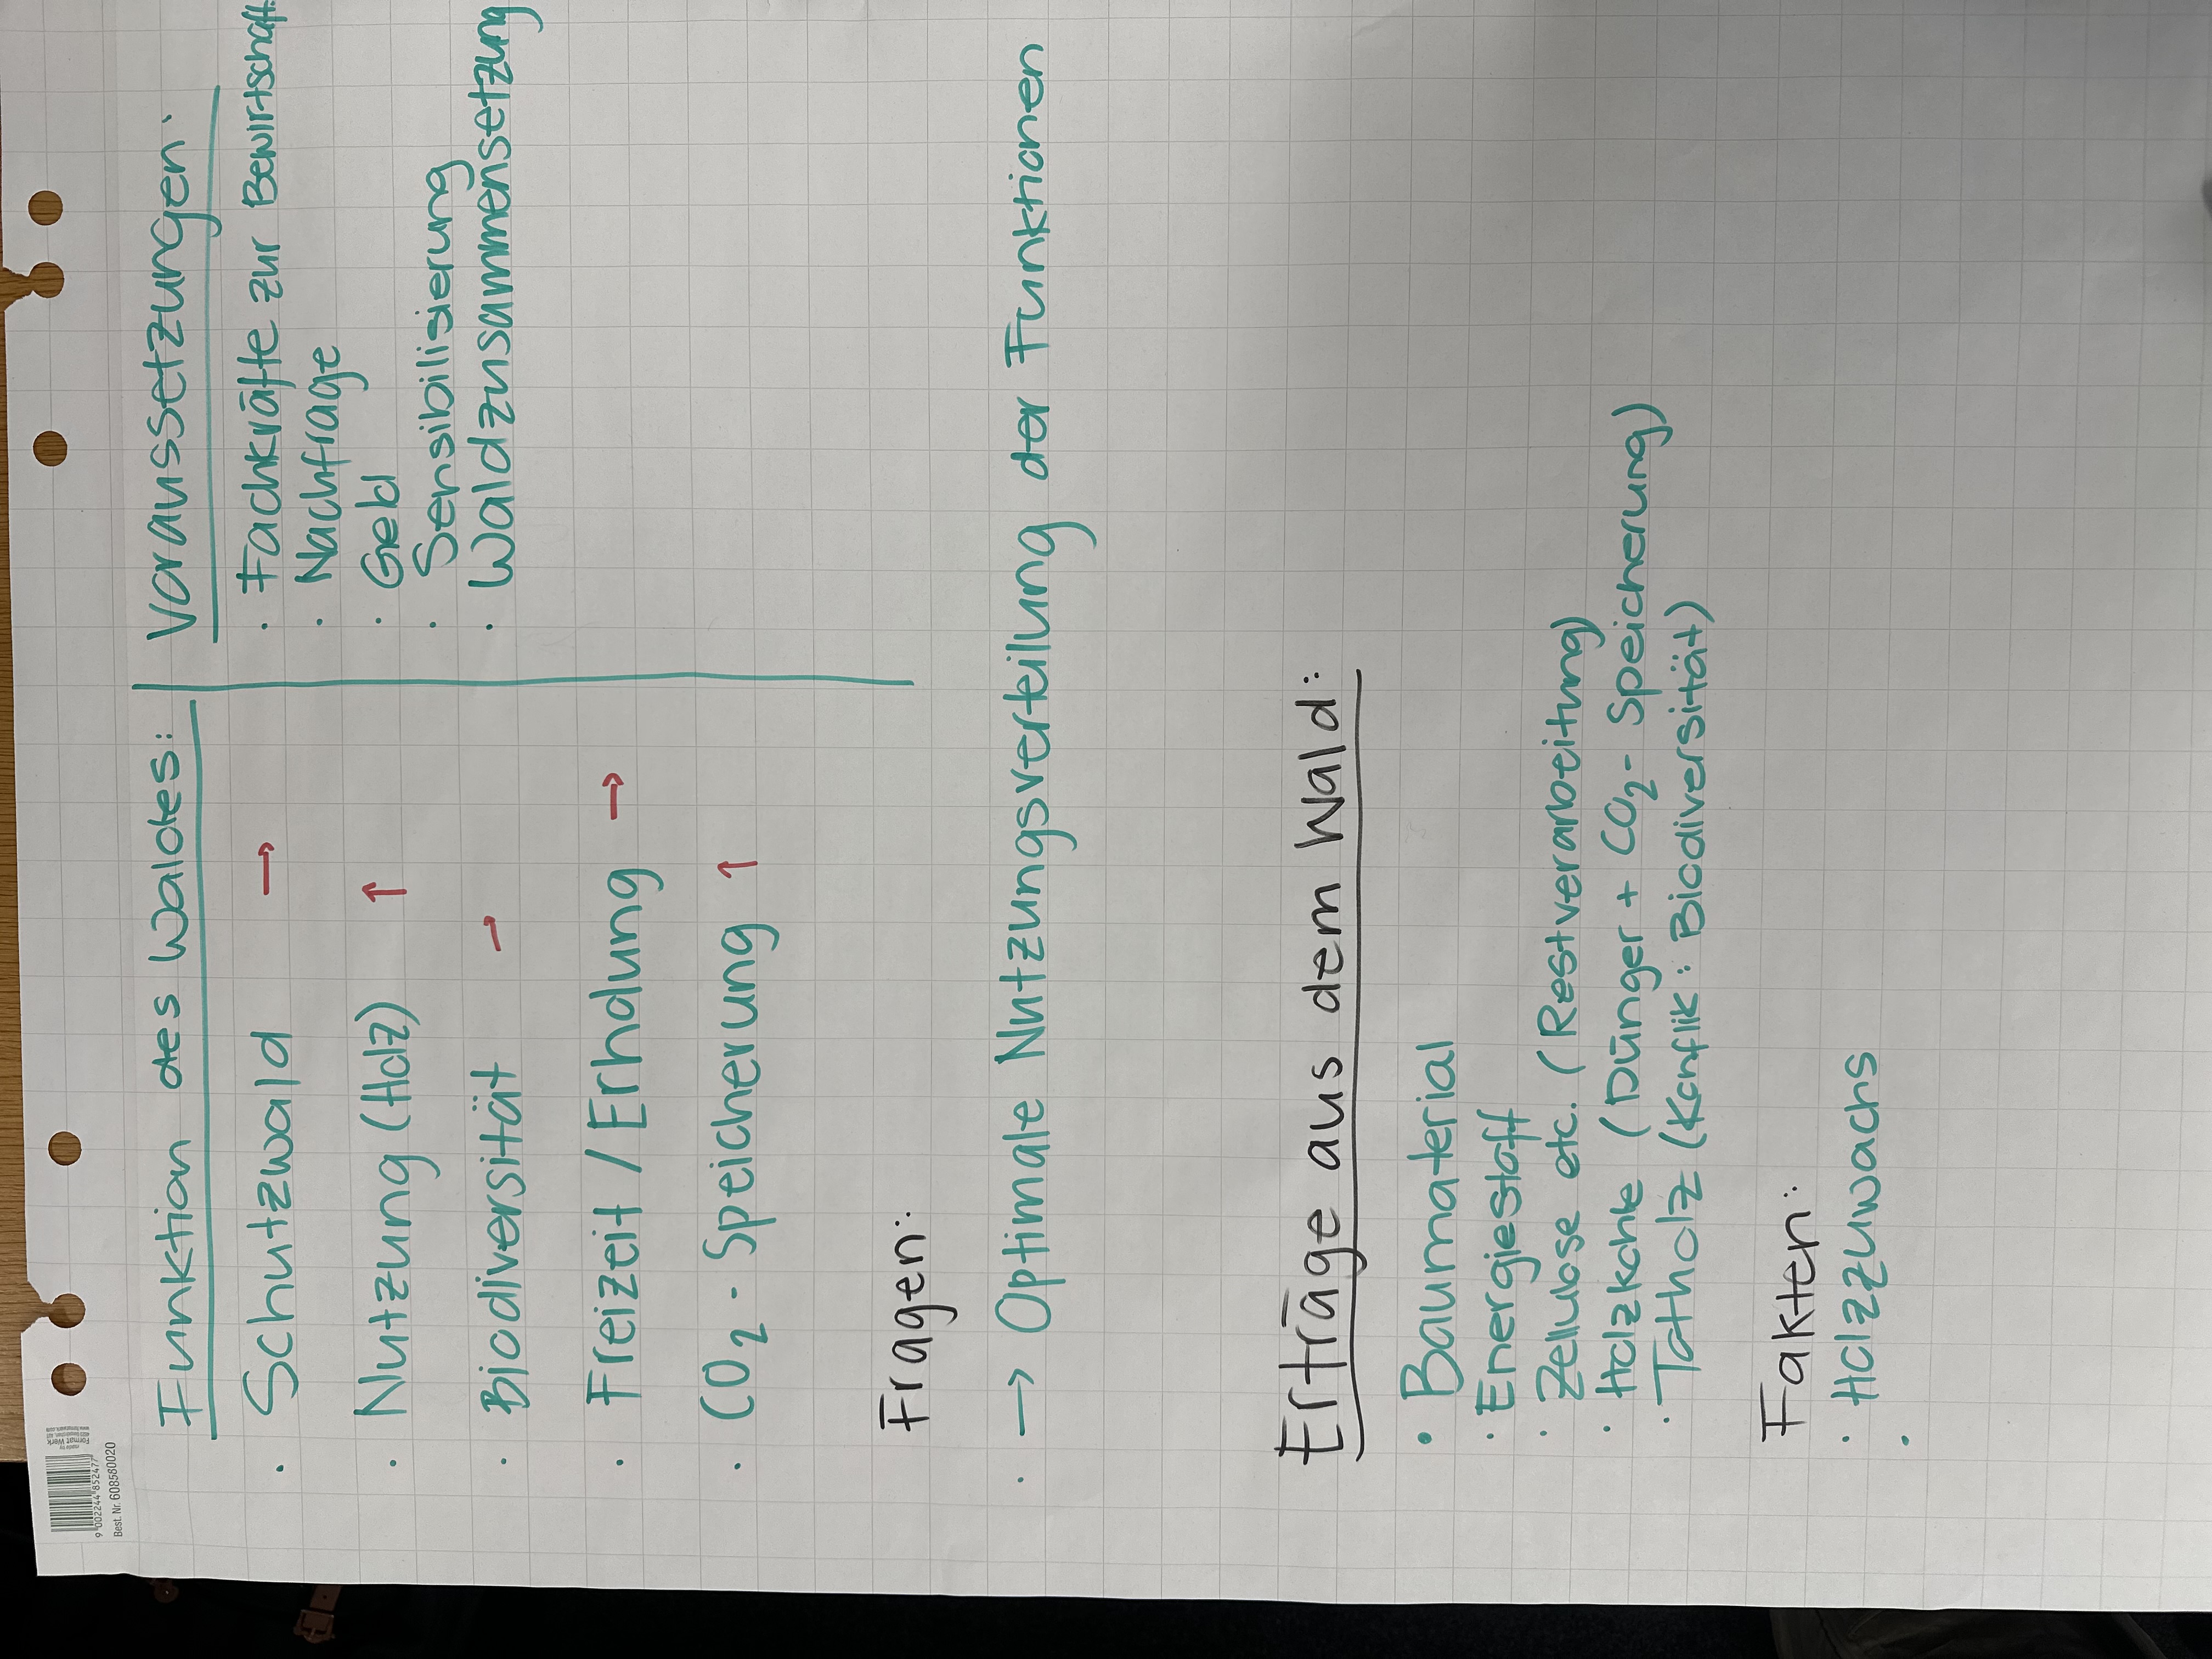 9 002244 852477
Best. Nr. 608560020
made by
Format Werk
Funktion des Waldes:
• Schutzwald →
• Nutzung (Holz) ↑
• Biodiversität →
• Freizeit / Erholung →
• CO₂-Speicherung ↑
Voraussetzungen:
• Fachkräfte zur Bewirtschaft.
• Nachfrage
• Geld
• Sensibilisierung
• Waldzusammensetzung
Fragen:
• → Optimale Nutzungsverteilung der Funktionen
Erträge aus dem Wald:
• Baumaterial
• Energiestoff
• Zellulose etc. (Restverarbeitung)
• Holzkohle (Dünger + CO₂-Speicherung)
• Totholz (Konflik: Biodiversität)
Fakten:
• Holzzuwachs
•